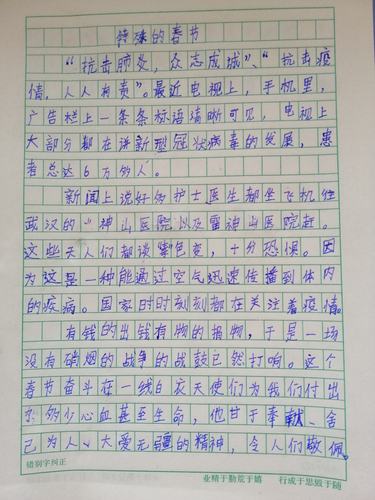 特殊的春节
“抗击肺炎，众志成城”、“抗击疫
情，人人有责”。最近电视上，手机里，
广告栏上一条条标语清晰可见，电视上
大部分都在讲新型冠状病毒的发展，患
者总达6万多人。
新闻上说好多护士医生都坐飞机往
武汉的“神山医院以及雷神山医院赶。
这些天人们都谈色变，十分恐惧。因
为这是一种能通过空气迅速传播到体内
的疾病。国家时时刻刻都在关注着疫情。
有钱的出钱有物的捐物，于是一场
没有硝烟的战争的战鼓已然打响。这个
春节奋斗在一线白衣天使们为我们付出
多少心血甚至生命，他甘于奉献、舍
己为人、大爱无疆的精神，令人们敬佩。
错别字纠正
业精于勤荒于嬉 行成于思毁于随